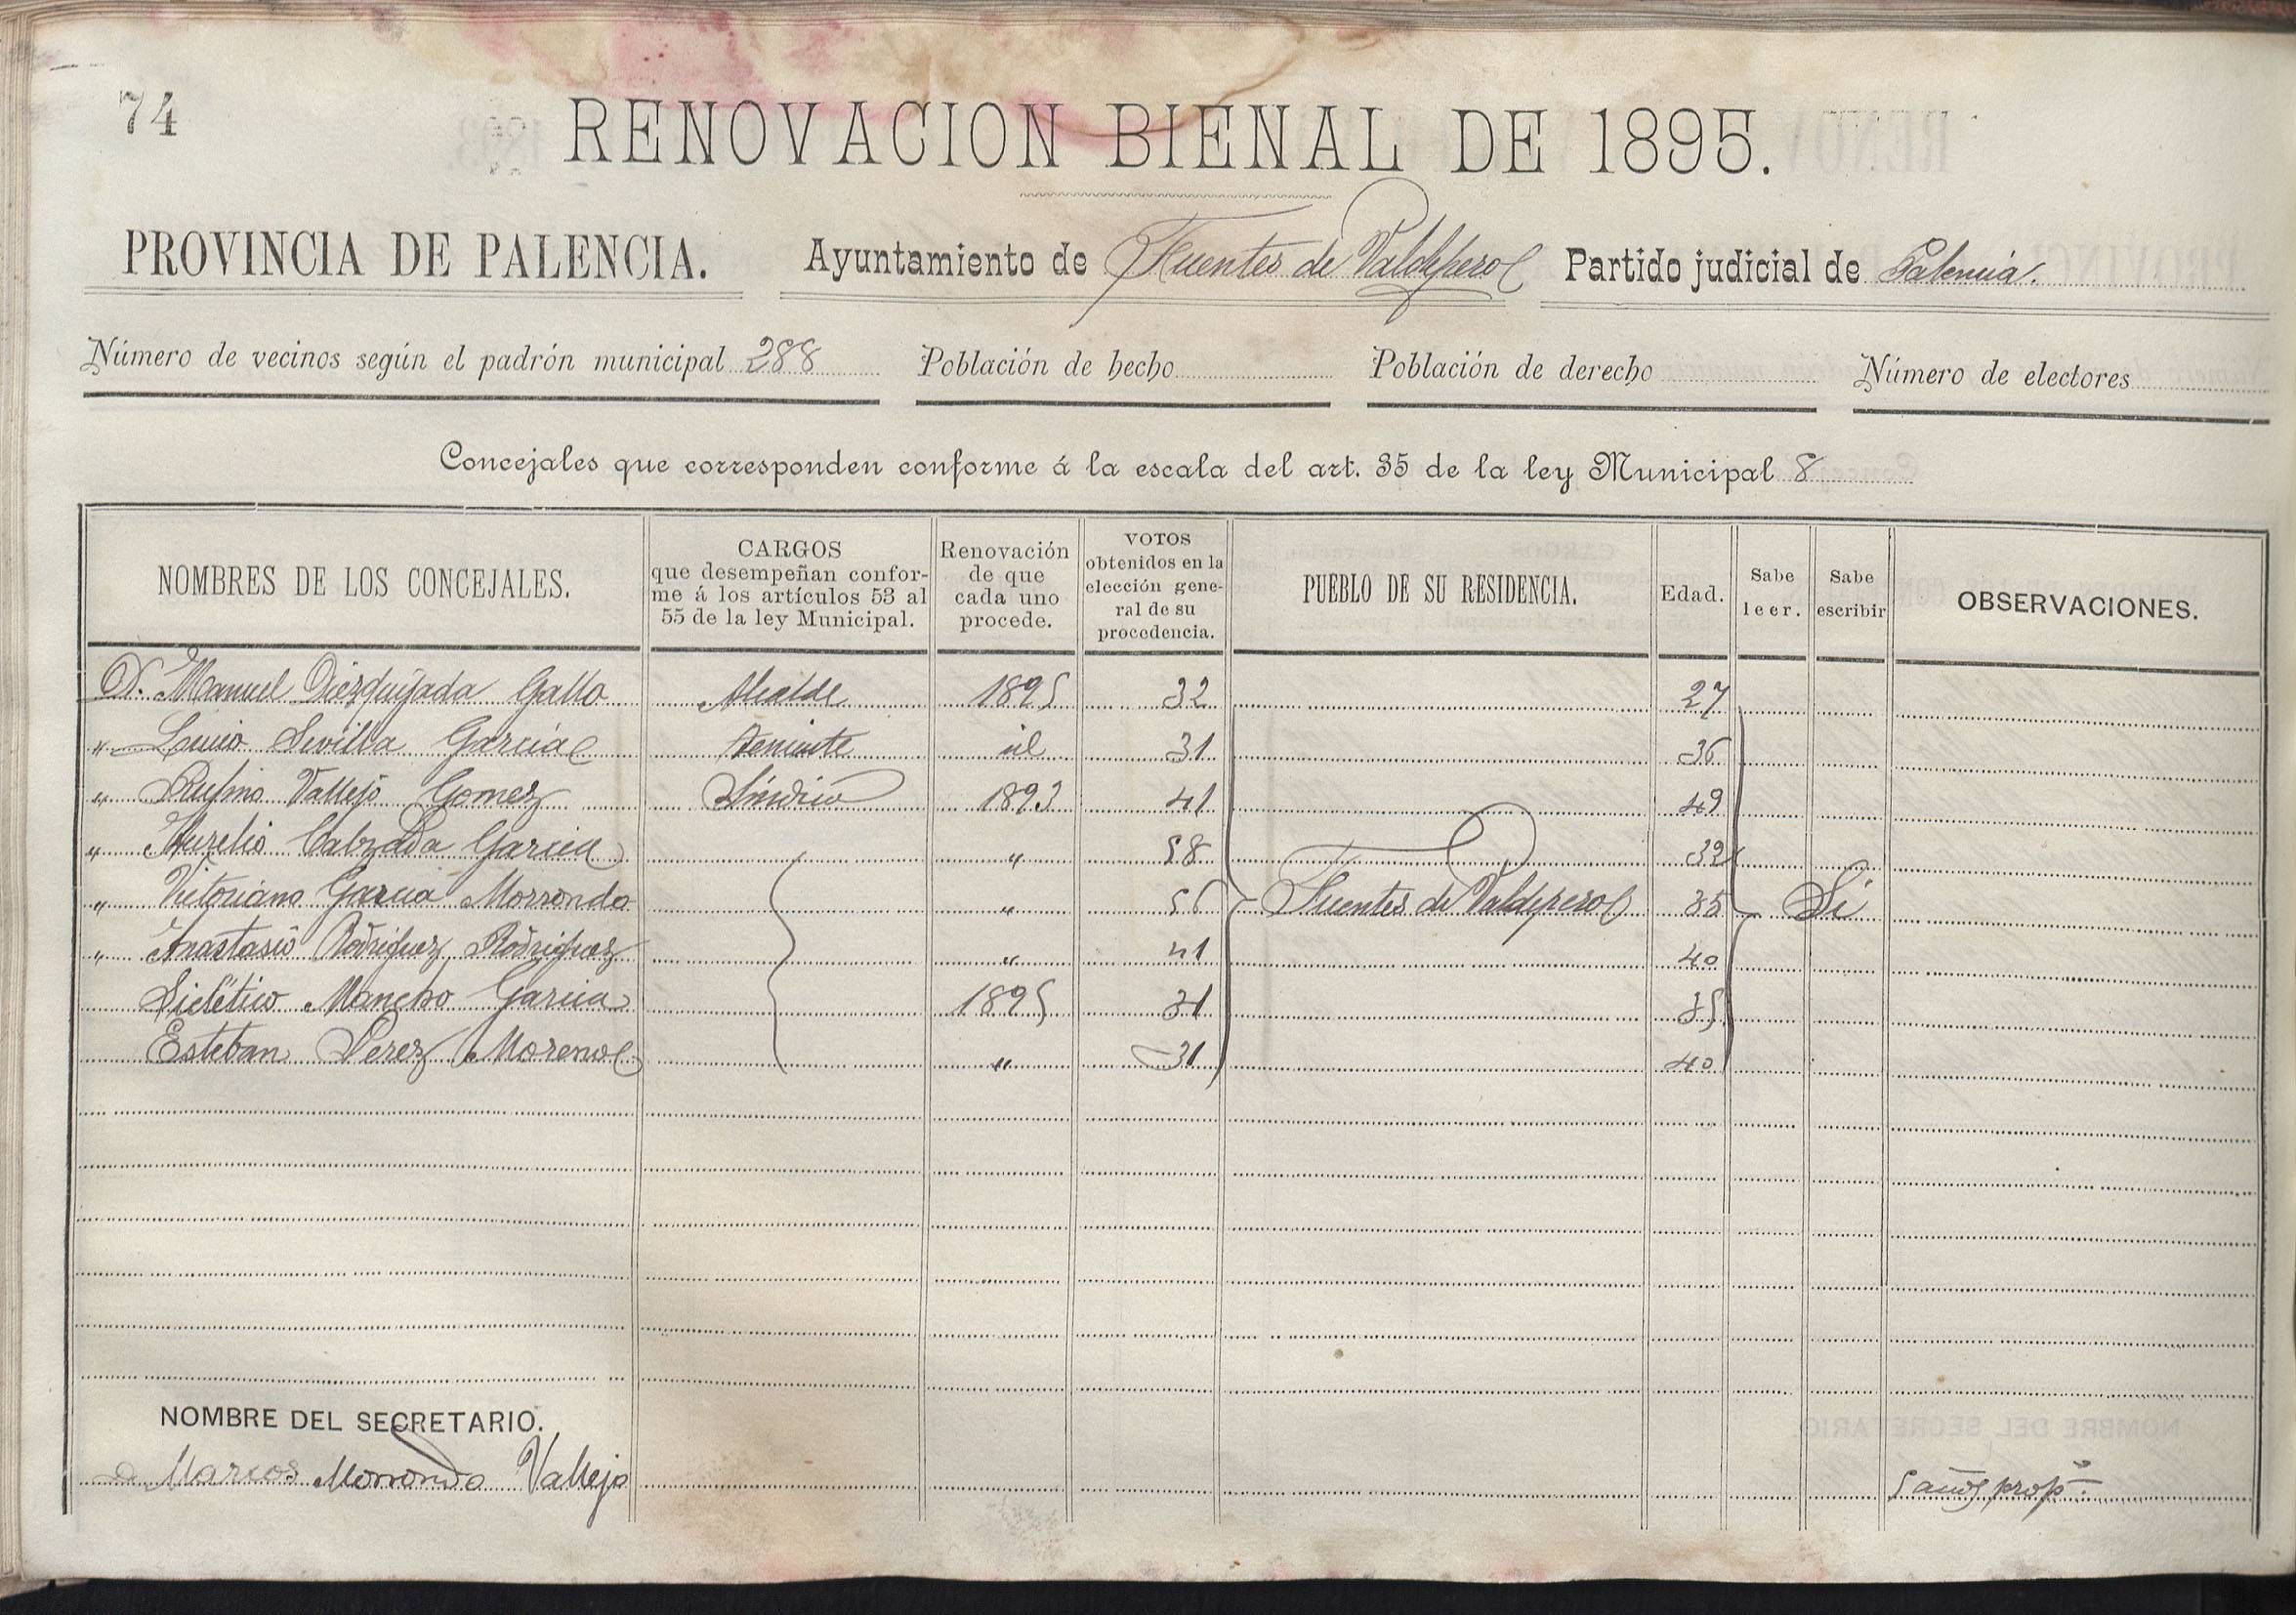 74
RENOVACION BIENAL DE 1895.
PROVINCIA DE PALENCIA. Ayuntamiento de Fuentes de Valdepero Partido judicial de Palencia.
Número de vecinos según el padrón municipal 288 Población de hecho Población de derecho Número de electores
Concejales que corresponden conforme á la escala del art. 35 de la ley Municipal 8
NOMBRES DE LOS CONCEJALES. CARGOS que desempeñan confor-me á los artículos 53 al 55 de la ley Municipal. Renovación de que cada uno procede. VOTOS obtenidos en la elección gene-ral de su procedencia. PUEBLO DE SU RESIDENCIA. Edad. Sabe leer. Sabe escribir OBSERVACIONES.
D. Manuel Diezquijada Gallo Alcalde 1895 32 27
" Lucio Sevilla Garcia Teniente id 31 36
" Rufino Vallejo Gomez Síndico 1893 41 49
" Aurelio Calzada Garcia " 58 32
" Victoriano Garcia Morrondo " 56 Fuentes de Valdepero 35 Si
" Anastasio Rodriguez Rodriguez " 41 40
Mancho Garcia 1895 31 35
Esteban Perez Moreno " 31 40
NOMBRE DEL SECRETARIO.
D Marcos Morrondo Vallejo 5 años prop.º